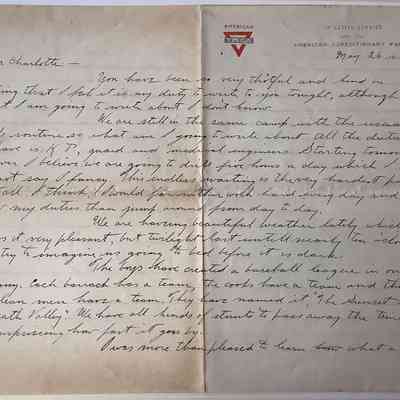 AMERICAN
Y.M.C.A.
ON ACTIVE SERVICE
WITH THE
AMERICAN EXPEDITIONARY
May 26
Charlotte —
You have been so very thoughtful and kind in
ing that I felt it is my duty to write to you tonight, although
I am going to write about I don't know.
We are still in the same camp with the usual
routine so what am I going to write about. All the duties
have is K.P., guard and engineers. Starting
I believe we are going to drill five hours a day which I
not say I fancy. This endless waiting is the very hardest
all I think. I would far rather with hard every day and
my duties than jump around from day to day.
We are having beautiful weather lately which
it very pleasant, but twilight last until nearly ten
try to imagine us going to bed before it is dark.
The boys have created a baseball league in our
Each barrack has a team, the cooks have a team and the
men have a team. They have named it "The Sunset
Valley". We have all kinds of stunts to pass away the time
surprising how fast it goes by.
I was more than pleased to learn how what a